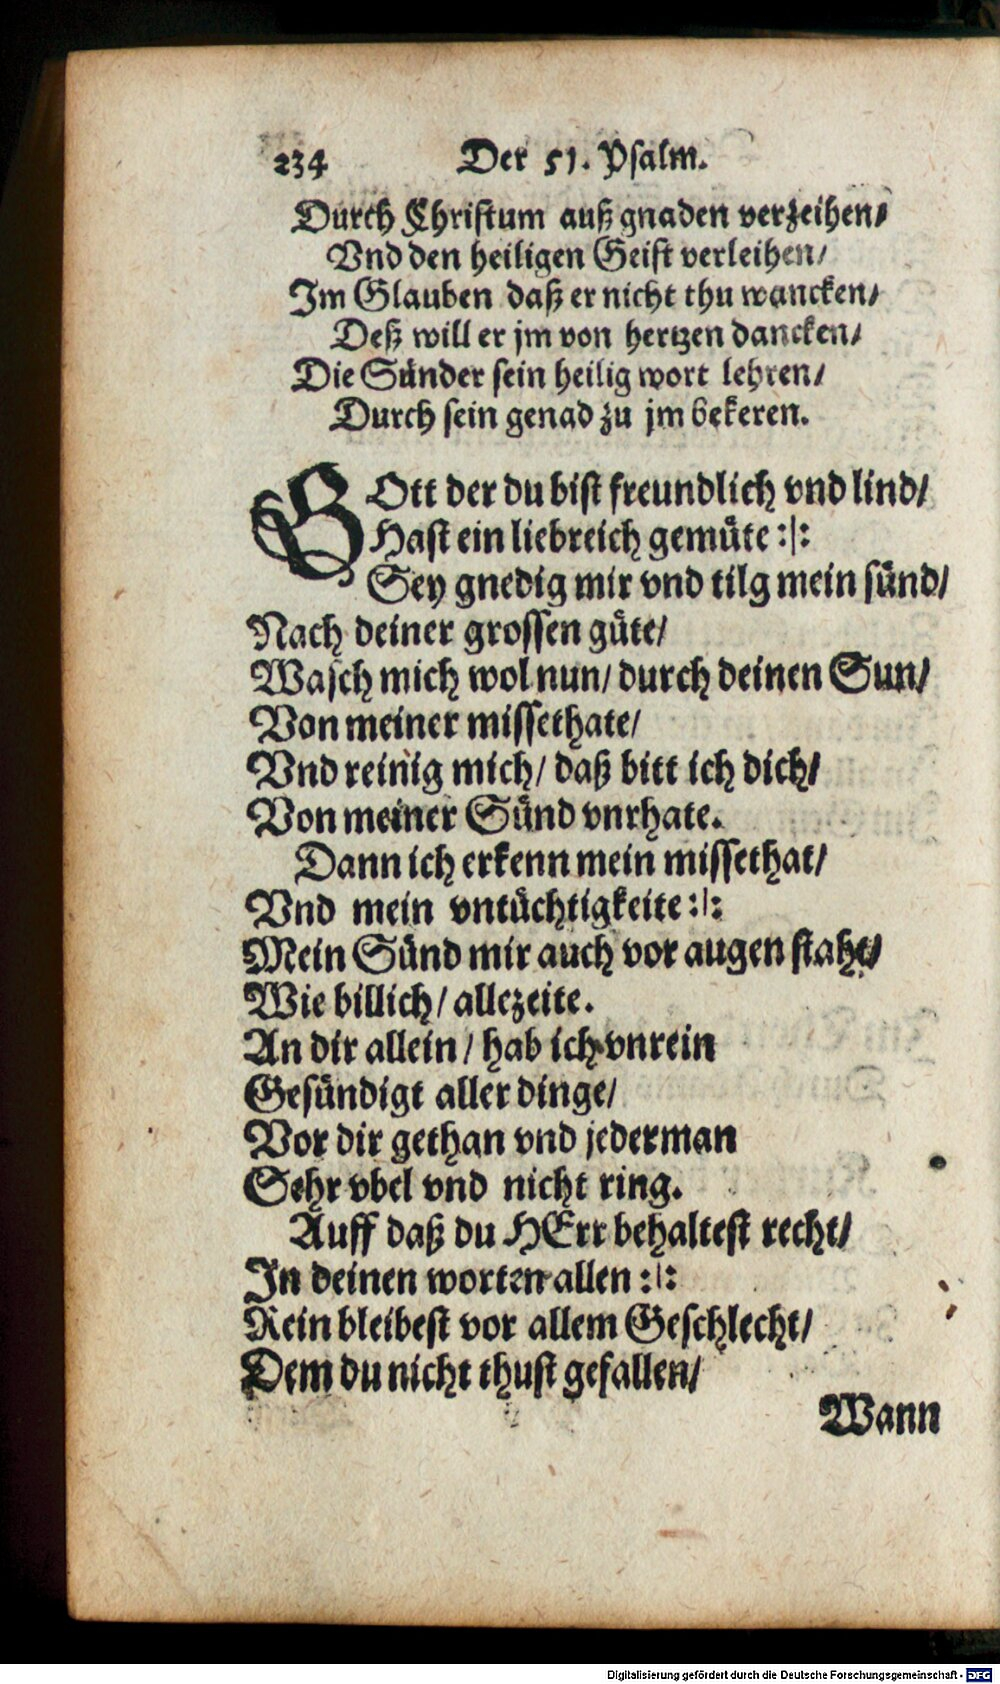 234 Der 51. Psalm.
Durch Christum auß gnaden verzeihen/
Vnd den heiligen Geist verleihen/
Im Glauben daß er nicht thu wancken/
Deß will er jm von hertzen dancken/
Die Sünder sein heilig wort lehren/
Durch sein genad zu jm bekeren.
GOtt der du bist freundlich vnd lind/
Hast ein liebreich gemüte :|:
Sey gnedig mir vnd tilg mein sünd/
Nach deiner grossen güte/
Wasch mich wol nun/ durch deinen Sun/
Von meiner missethate/
Vnd reinig mich/ daß bitt ich dich/
Von meiner Sünd vnrhate.
Dann ich erkenn mein missethat/
Vnd mein vntüchtigkeite :|:
Mein Sünd mir auch vor augen staht/
Wie billich/ allezeite.
An dir allein/ hab ich vnrein
Gesündigt aller dinge/
Vor dir gethan vnd jederman
Sehr vbel vnd nicht ring.
Auff daß du HErr behaltest recht/
In deinen worten allen :|:
Rein bleibest vor allem Geschlecht/
Dem du nicht thust gefallen/
Wann
Digitalisierung gefördert durch die Deutsche Forschungsgemeinschaft - DFG